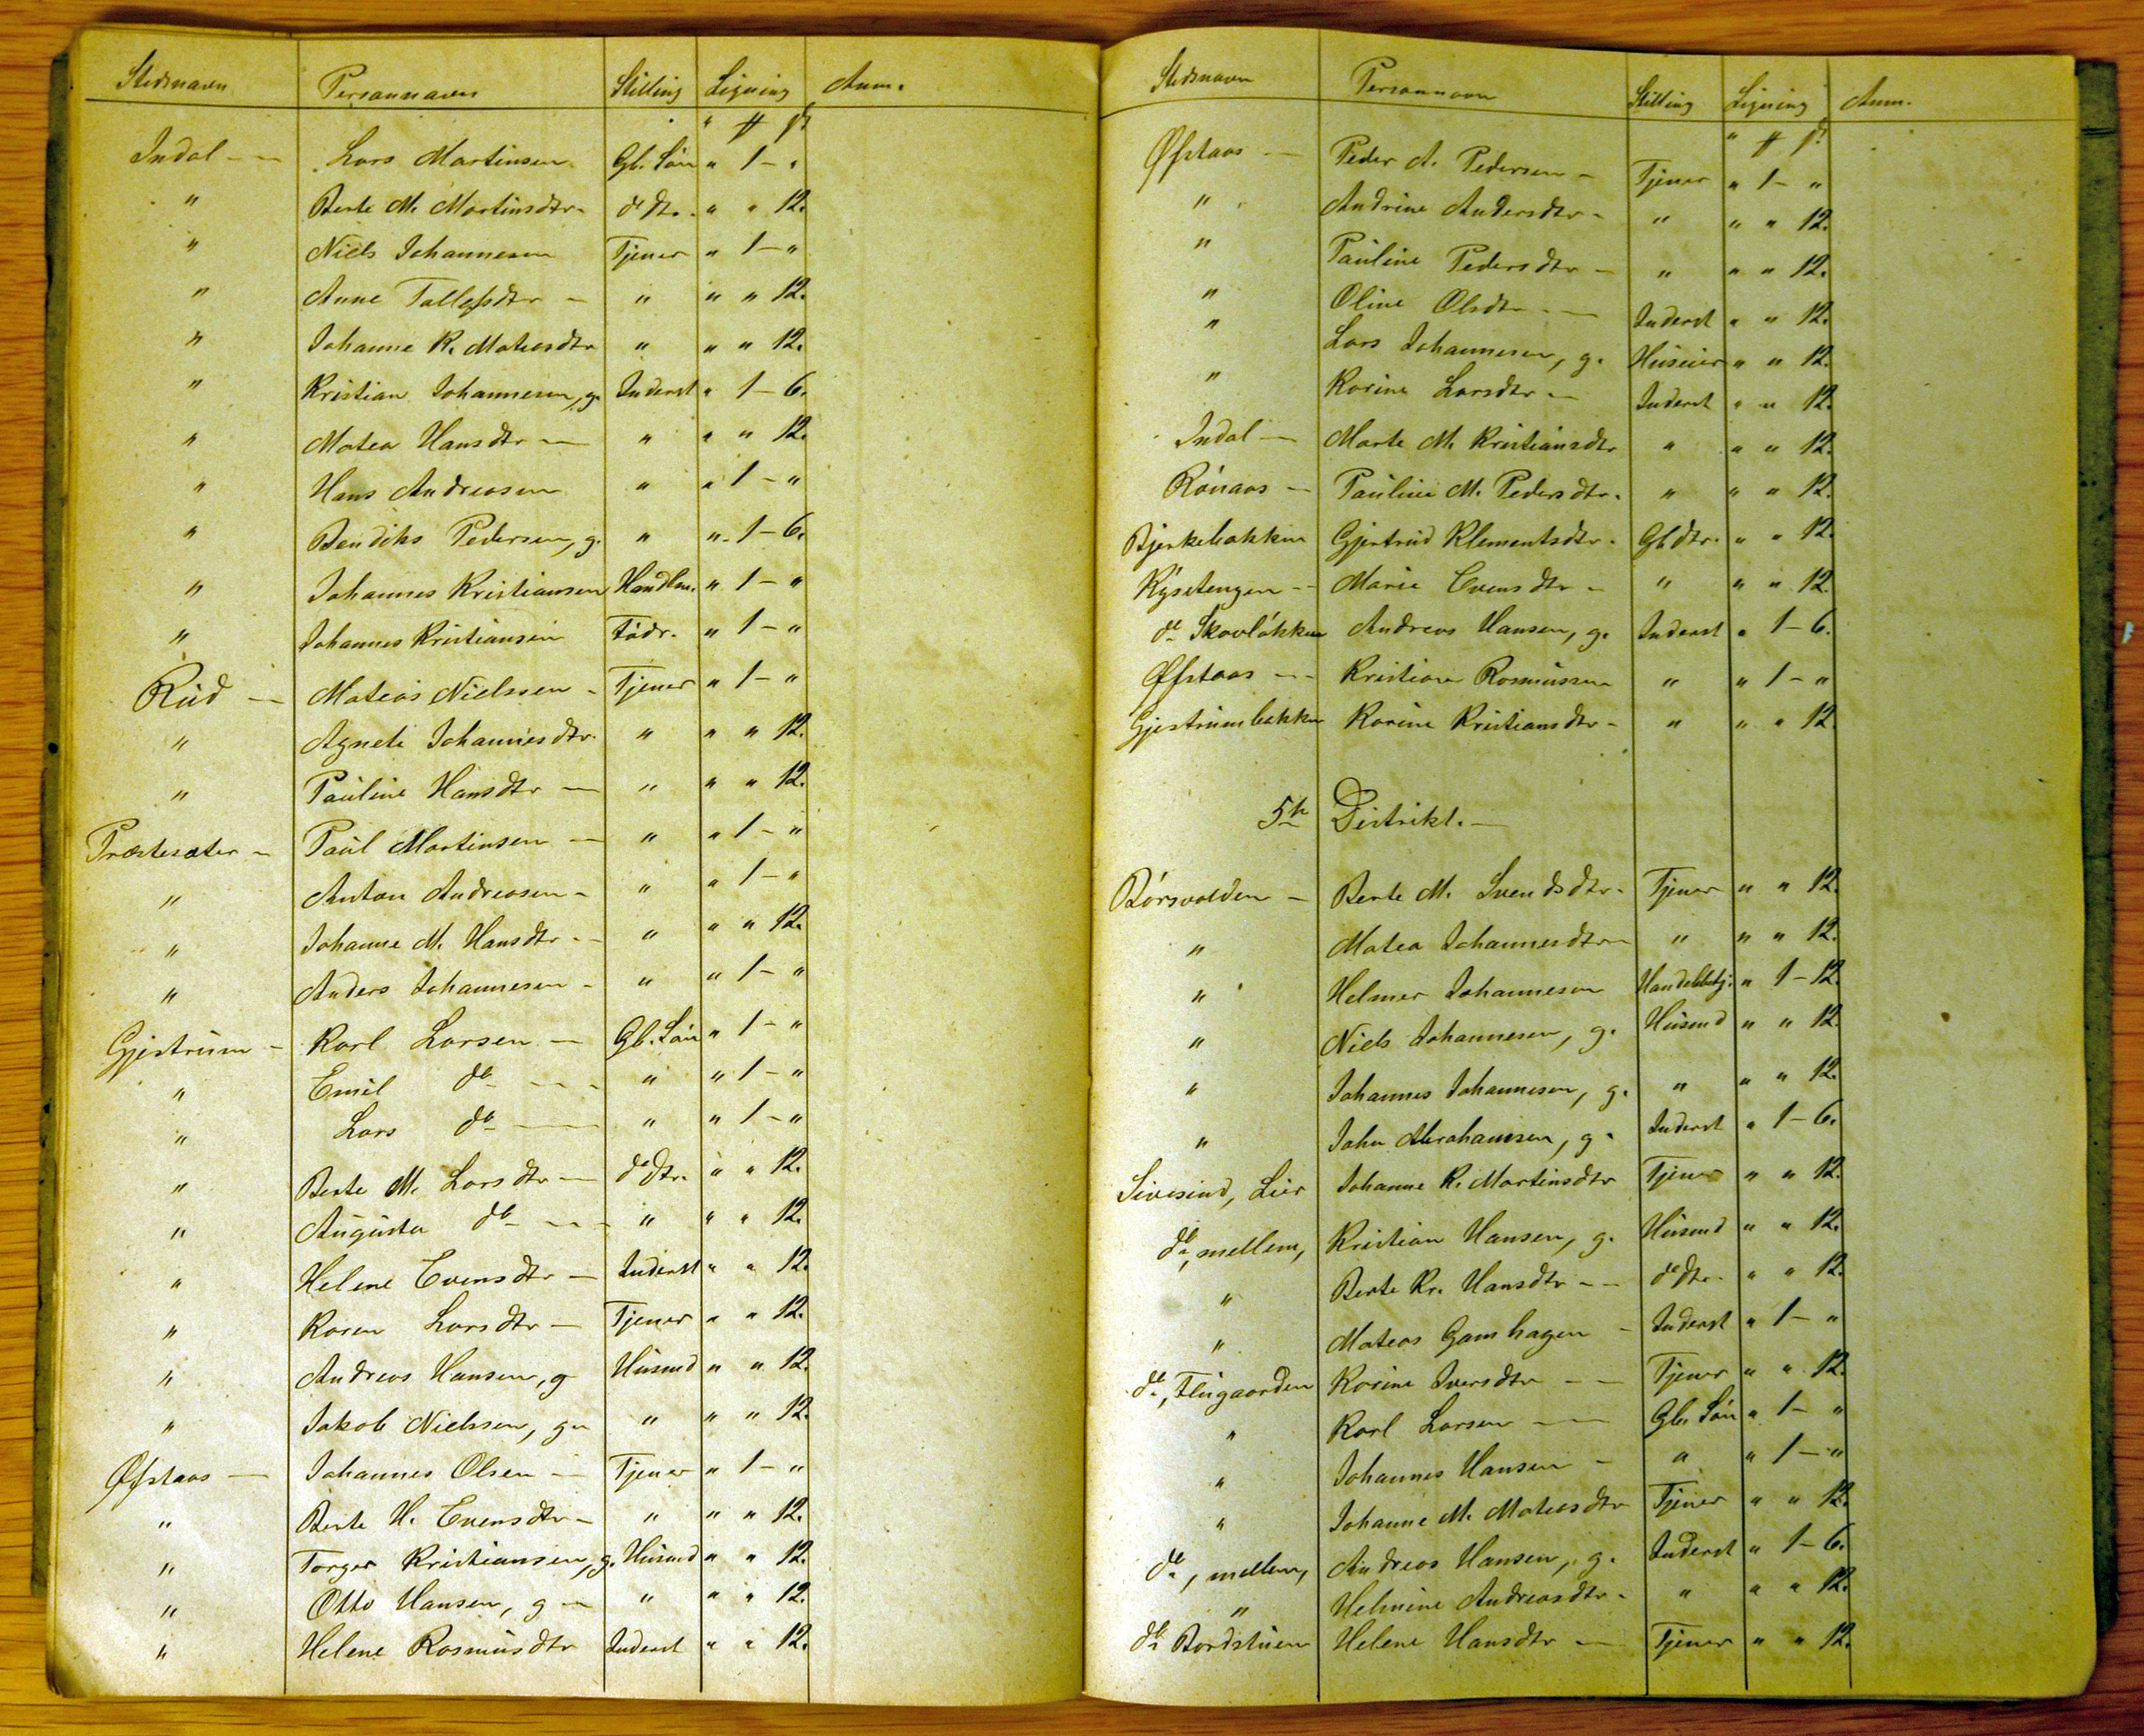 Stedsnavn Personnavn Stilling Ligning Anm.
" # ſ
Indal -- Lars Martinsen Gb. Sön " 1 - "
" Berte M. Martinsdtr. do dtr. " " 12.
" Niels Johannesen Tjener " 1 - "
" Anne Tollefsdtr - " " " 12.
" Johanne K. Mateasdtr " " " 12.
" Kristian Johannesen, g. Inderst " 1 - 6.
" Matea Hansdtr — " " " 12.
" Hans Andreasen " " 1 - "
" Bendiks Pedersen, g. " " 1 - 6.
" Johannes Kristiansen Handlm. " 1 - "
" Johannes Kristiansen Födr. " 1 - "
Rud — Mateas Nielssen - Tjener " 1 - "
" Agnete Johannesdtr. " " " 12.
" Pauline Hansdtr — " " " 12.
Præstesæter - Paul Martinsen — " " 1 - "
" Anton Andreasen - " " 1 - "
" Johanne M. Hansdtr. - " " " 12.
" Anders Johannesen - " " 1 - "
Gjestrum - Karl Larsen — Gb. Sön " 1 - "
" Emil do - - - " " 1 - "
" Lars do —— " " 1 - "
" Berte M. Larsdtr — do dtr. " " 12.
" Augusta do - - - " " " 12.
" Helene Evensdtr — Inderst " " 12.
" Karen Larsdtr — Tjener " " 12.
" Andreas Hansen, g Husmd " " 12.
" Jakob Nielssen, g - " " " 12.
Øfstaas — Johannes Olsen — Tjener " 1 - "
" Berte H. Evensdtr - " " " 12.
" Torger Kristiansen, g. Husmd " " 12.
" Otto Hansen, g — " " " 12.
" Helene Rasmusdtr Inderst " " 12.
Stedsnavn Personnavn Stilling Ligning Anm.
" # ſ
Øfstaas — Peder A. Pedersen - Tjener " 1 - "
" Andrine Andersdtr - " " " 12.
" Pauline Pedersdtr - " " " 12.
" Oline Olsdtr. — Inderst " " 12.
" Lars Johannesen, g. Huseier " " 12.
" Karine Larsdtr - Inderst " " 12.
Indal — Marte M. Kristiansdtr " " " 12.
Rönaas — Pauline M. Pedersdtr. " " " 12.
Bjerkebakken Gjertrud Klementsdtr. Gb dtr. " " 12.
Kysetengen - Marie Evensdtr - " " " 12.
do Skovlökken Andreas Hansen, g. Inderst " 1 - 6.
Øfstaas - - Kristian Rasmussen " " 1 - "
Gjestrumbakken Karine Kristiansdtr - " " " 12.
5te Distrikt. —
Börsvolden — Berte M. Svendsdtr. Tjener " " 12.
" Matea Johannesdtr — " " " 12.
" Helmer Johannesen Handelsbetj. " 1 - 12.
" Niels Johannesen, g. Husmd " " 12.
" Johannes Johannesen, g. " " " 12.
" John Abrahamsen, g. Inderst " 1 - 6.
Sivesind, Lier Johanne K. Martinsdtr Tjener " " 12.
do, mellem, Kristian Hansen, g. Husmd " " 12.
" Berte Kr. Hansdtr - - do dtr. " " 12.
" Mateas Gamhagen - Inderst " 1 - "
do, Flugaarden Karine Iversdtr - - Tjener " " 12.
" Karl Larsen — Gb. Sön " 1 - "
" Johannes Hansen - " " 1 - "
" Johanne M. Mateasdtr Tjener " " 12.
do, mellem, Andreas Hansen, g. Inderst " 1 - 6.
" Helmine Andreasdtr - " " " 12.
do Bordstuen Helene Hansdtr — Tjener " " 12.